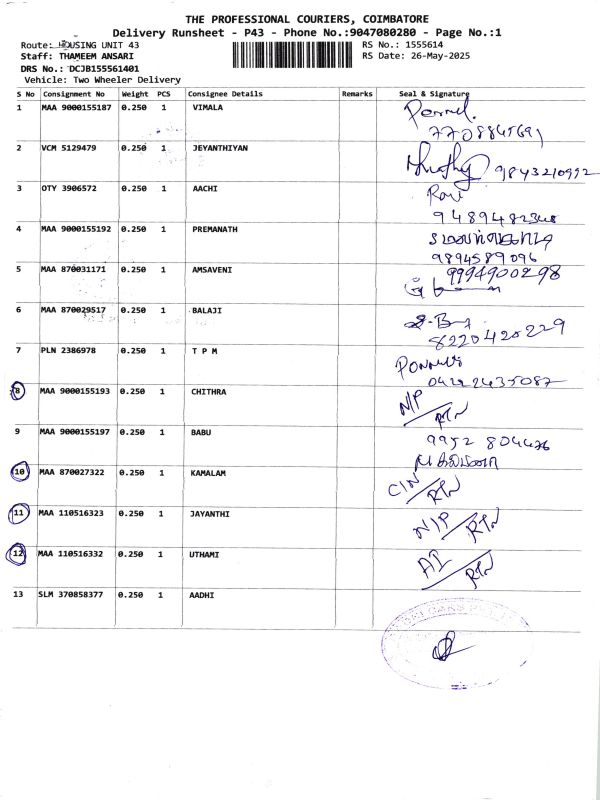 THE PROFESSIONAL COURIERS, COIMBATORE
Delivery Runsheet - P43 - Phone No.:9047080280 - Page No.:1
Route: HOUSING UNIT 43
RS No.: 1555614
Staff: THAMEEM ANSARI
RS Date: 26-May-2025
DRS No.: DCJB155561401
Vehicle: Two Wheeler Delivery
S No Consignment No Weight PCS Consignee Details Remarks Seal & Signature
1 MAA 9000155187 0.250 1 VIMALA
2 VCM 5129479 0.250 1 JEYANTHIYAN
9843210992
3 OTY 3906572 0.250 1 AACHI Ravi
9489482348
4 MAA 9000155192 0.250 1 PREMANATH
9894589096
5 MAA 870031171 0.250 1 AMSAVENI 9994900298
6 MAA 870029517 0.250 1 BALAJI
8220420229
7 PLN 2386978 0.250 1 T P M
0422 2435087
8 MAA 9000155193 0.250 1 CHITHRA N/P / RTN
9 MAA 9000155197 0.250 1 BABU 9952 804426
10 MAA 870027322 0.250 1 KAMALAM C/N / RTN
11 MAA 110516323 1 JAYANTHI 0.250 N/P / RTN
12 MAA 110516332 0.250 1 UTHAMI AI / RTN
13 SLM 370858377 0.250 1 AADHI